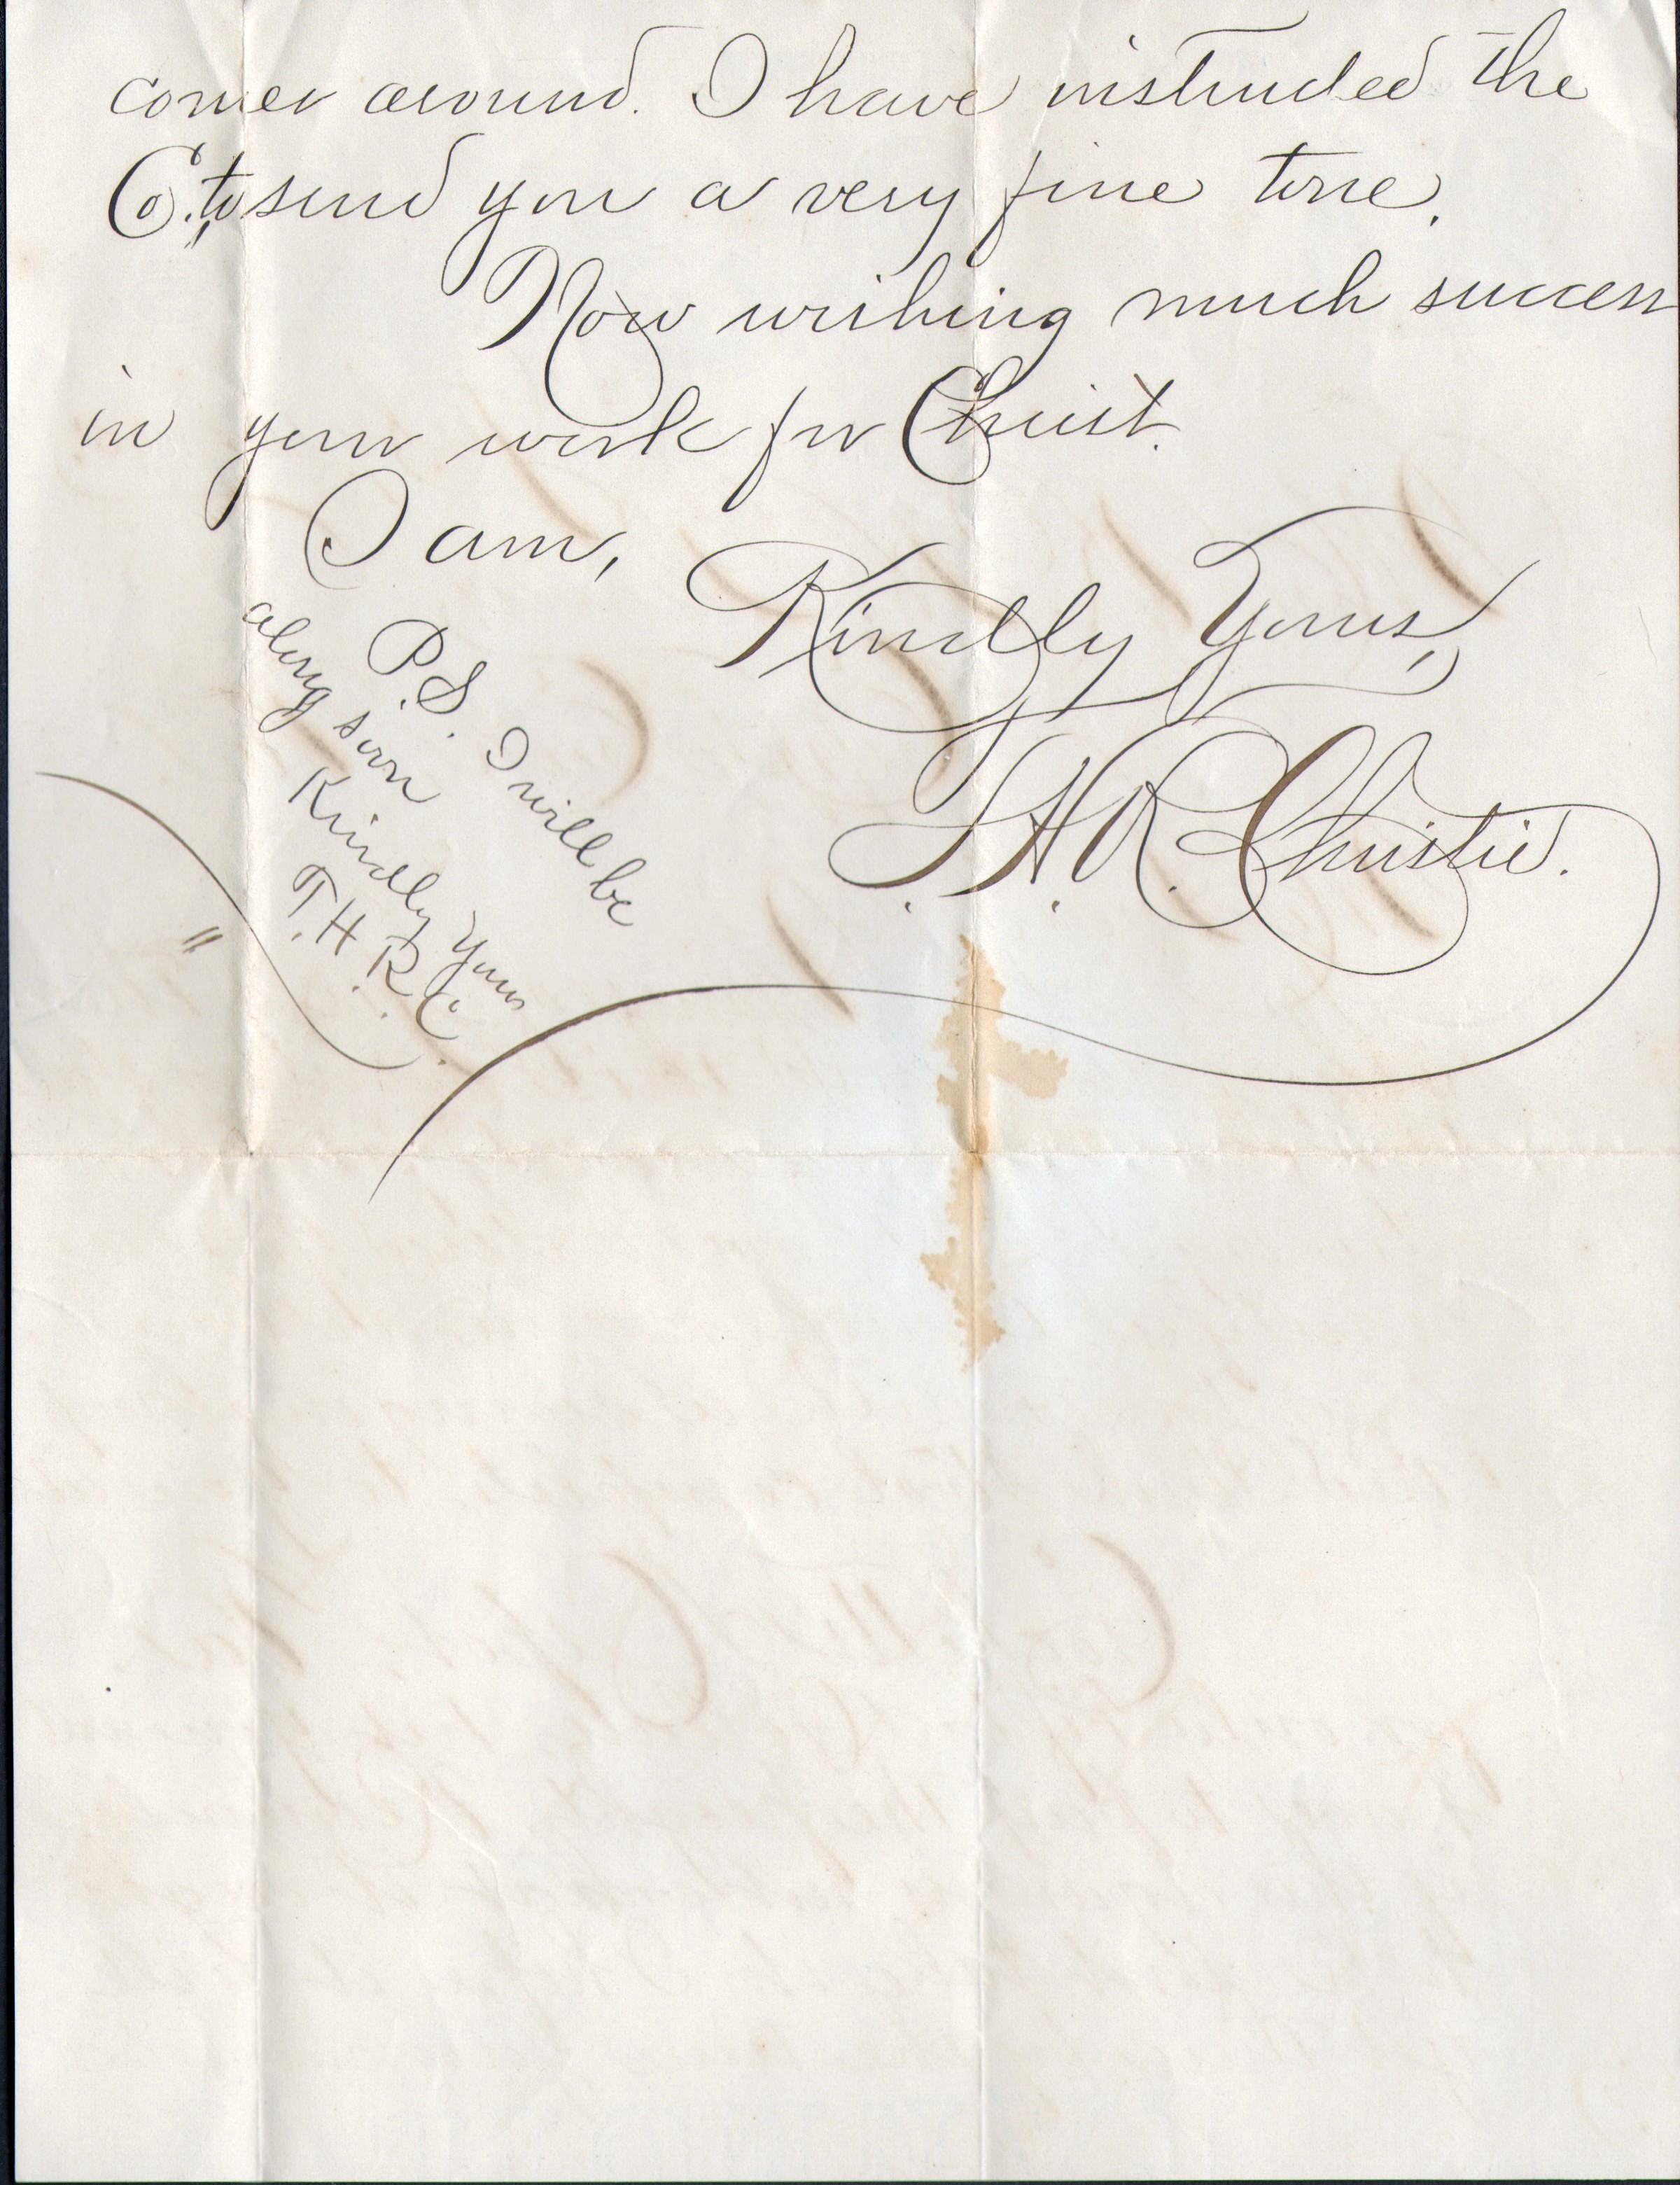 comes around. I have instructed the
Co. to send you a very fine tone.
Now wishing much success
in your work for Christ.
I am,
Kindly Yours,
T. H. R. Christie.
P.S. I will be
along soon
Kindly Yours
T. H. R. C.